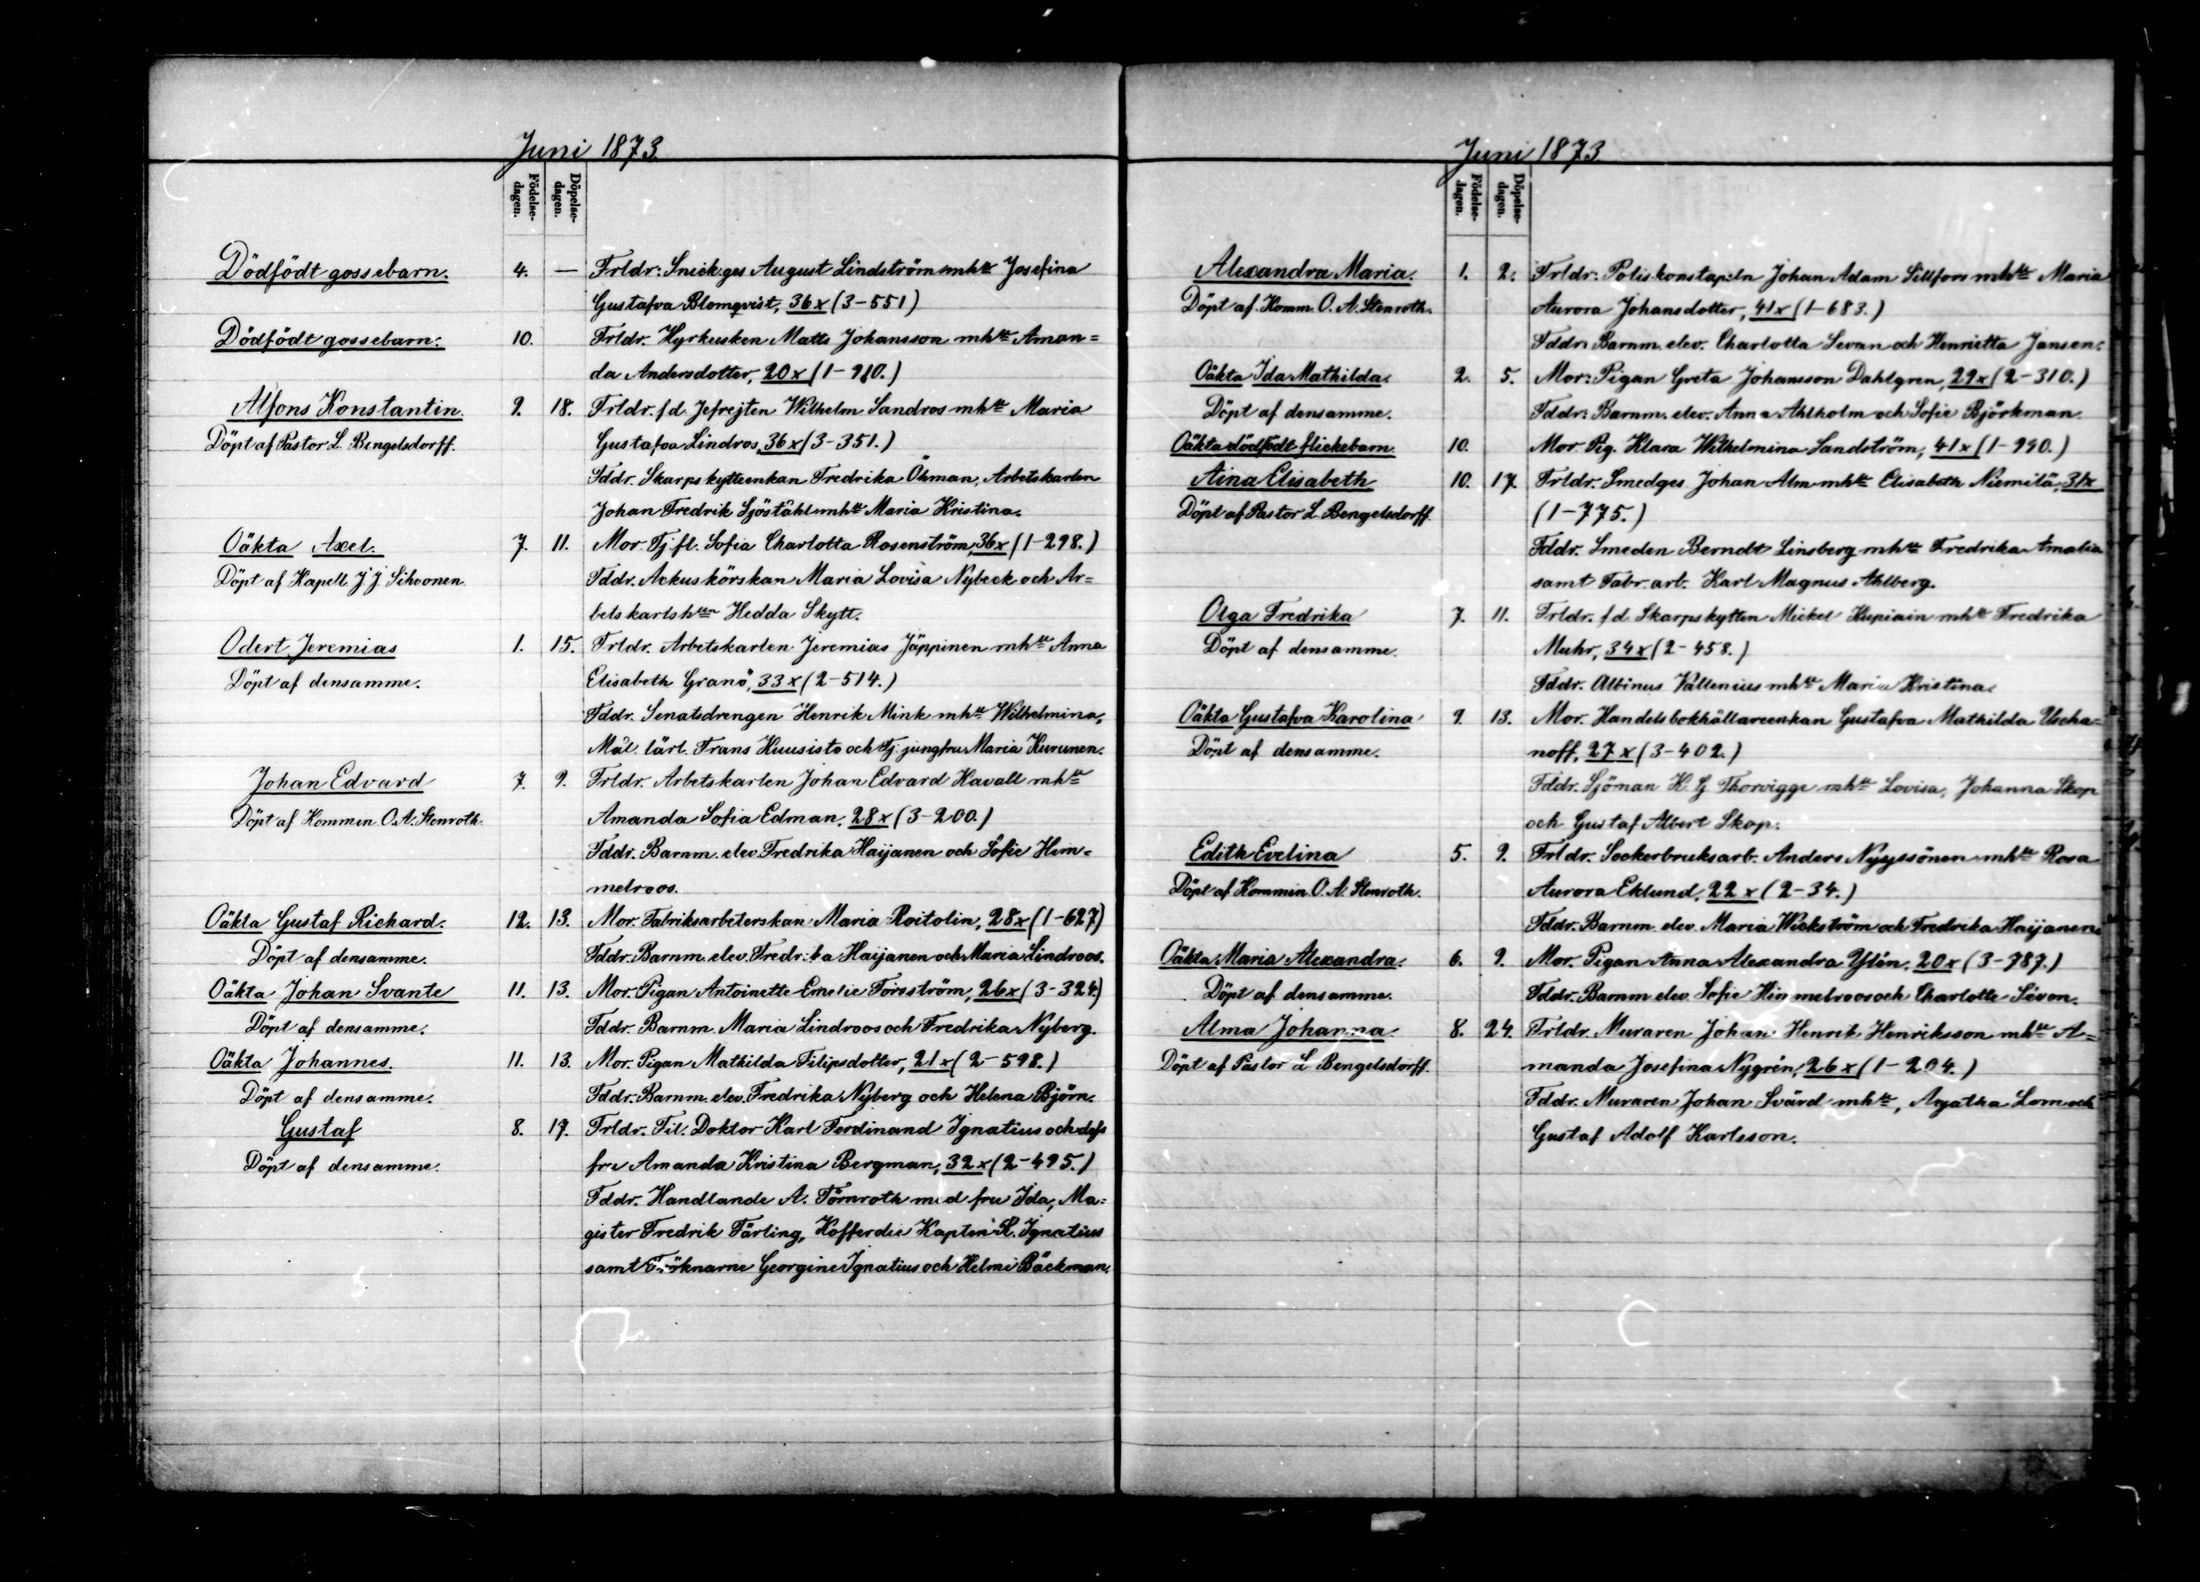 Juni 1873
Födelse-dagen. Döpelse-dagen.
Dödfödt gossebarn. 4. — Frldr: Snick.ges August Lindström mhu Josefina
Gustafva Blomqvist, 36x (3-551)
Dödfödt gossebarn. 10. Frldr. Hyrkusken Matts Johansson mhu Aman=
da Andersdotter, 20x (1-910.)
Alfons Konstantin. 9. 18. Frldr. f d Jefrejten Wilhelm Sandros mhu Maria
Döpt af Pastor L. Bengelsdorff. Gustafva Lindros, 36x (3-351.)
Fddr. Skarpskytteenkan Fredrika Öhman, Arbetskarlen
Johan Fredrik Sjöståhl mhu Maria Kristina.
Oäkta Axel. 7. 11. Mor. Tj.fl. Sofia Charlotta Rosenström, 36x (1-298.)
Döpt af Kapell. J J Sihvonen Fddr. Ackuskörskan Maria Lovisa Nybeck och Ar=
betskarlshun Hedda Skytt.
Odert Jeremias 1. 15. Frldr. Arbetskarlen Jeremias Jäppinen mhu Anna
Döpt af densamme. Elisabeth Granö, 33x (2-514.)
Fddr. Senatsdrengen Henrik Mink mhu Wilhelmina,
Mål. lärl. Frans Huusisto och Tj. jungfru Maria Kurunen.
Johan Edvard 7. 9. Frldr. Arbetskarlen Johan Edvard Havall mhu
Döpt af Kommin. O. A. Stenroth. Amanda Sofia Edman, 28x (3-200.)
Fddr. Barnm. elev. Fredrika Haijanen och Sofie Him=
melroos.
Oäkta Gustaf Richard. 12. 13. Mor. Fabriksarbeterskan Maria Roitolin, 28x (1-627)
Döpt af densamme. Fddr. Barnm. elev. Fredrika Haijanen och Maria Lindroos.
Oäkta Johan Svante 11. 13. Mor. Pigan Antoinette Emelie Forsström, 26x (3-324)
Döpt af densamme. Fddr. Barnm. Maria Lindroos och Fredrika Nyberg.
Oäkta Johannes. 11. 13. Mor. Pigan Mathilda Filipsdotter, 21x (2-598.)
Döpt af densamme. Fddr. Barnm. elev. Fredrika Nyberg och Helena Björn.
Gustaf 8. 17. Frldr. Fil. Doktor Karl Ferdinand Ignatius och dess
Döpt af densamme. fru Amanda Kristina Bergman, 32x (2-495.)
Fddr. Handlande A. Törnroth med fru Ida, Ma=
gister Fredrik Färling, Kofferdie Kapten K. Ignatius
samt Fröknarne Georgine Ignatius och Helmi Bäckman.
Juni 1873
Födelse-dagen. Döpelse-dagen.
Alexandra Maria. 1. 2. Frldr: Poliskonstapeln Johan Adam Sillfors mhu Maria
Döpt af Komm. O. A. Stenroth. Aurora Johansdotter, 41x (1-683.)
Fddr. Barnm. elev. Charlotta Sevan och Henrietta Jansen.
Oäkta Ida Mathilda. 2. 5. Mor: Pigan Greta Johansson Dahlgren, 29x (2-310.)
Döpt af densamme. Fddr: Barnm. elev. Anna Ahlholm och Sofie Björkman
Oäkta dödfödt flickebarn. 10. Mor. Pig. Klara Wilhelmina Sandström, 41x (1-990.)
Aina Elisabeth 10. 17. Frldr. Smedges Johan Alm mhu Elisabeth Niemilä, 31x
Döpt af Pastor L. Bengelsdorff. (1-775.)
Fddr. Smeden Berndt Linsberg mhu Fredrika Amalia
samt Fabr. arb. Karl Magnus Ahlberg.
Olga Fredrika 7. 11. Frldr. f d Skarpskytten Mickel Kupiain mhu Fredrika
Döpt af densamme. Muhr, 34x (2-458.)
Fddr. Albinus Vållenius mhu Maria Kristina.
Oäkta Gustafva Karolina 9. 13. Mor. Handelsbokhållareenkan Gustafva Mathilda Uscha=
Döpt af densamme. noff, 27x (3-402.)
Fddr. Sjöman K. G Thorvigge mhu Lovisa, Johanna Skop
och Gustaf Albert Skop.
Edith Evelina 5. 9. Frldr. Sockerbruksarb. Anders Nyyssönen mhu Rosa
Döpt af Kommin. O. A. Stenroth. Aurora Eklund, 22x (2-34.)
Fddr. Barnm. elev. Maria Wickström och Fredrika Haijanen.
Oäkta Maria Alexandra. 6. 9. Mor. Pigan Anna Alexandra Ylén, 20x (3-787.)
Döpt af densamme. Fddr. Barnm. elev. Sofie Himmelroos och Charlotte Sevon.
Alma Johanna. 8. 24. Frldr. Muraren Johan Henrik Henriksson mhu A=
Döpt af Pastor L Bengelsdorff. manda Josefina Nygrén, 26x (1-204.)
Fddr. Muraren Johan Svärd mhu, Agatha Lom och
Gustaf Adolf Karlsson.